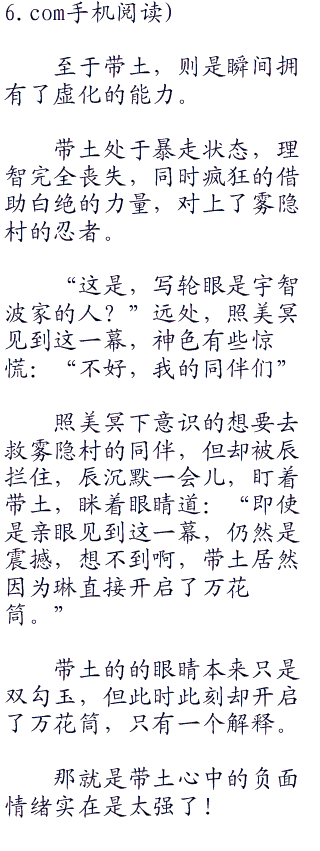 6.com手机阅读)
至于带土，则是瞬间拥
有了虚化的能力。
带土处于暴走状态，理
智完全丧失，同时疯狂的借
助白绝的力量，对上了雾隐
村的忍者。
“这是，写轮眼是宇智
波家的人？”远处，照美冥
见到这一幕，神色有些惊
慌：“不好，我的同伴们”
照美冥下意识的想要去
救雾隐村的同伴，但却被辰
拦住，辰沉默一会儿，盯着
带土，眯着眼睛道：“即使
是亲眼见到这一幕，仍然是
震撼，想不到啊，带土居然
因为琳直接开启了万花
筒。”
带土的的眼睛本来只是
双勾玉，但此时此刻却开启
了万花筒，只有一个解释。
那就是带土心中的负面
情绪实在是太强了！